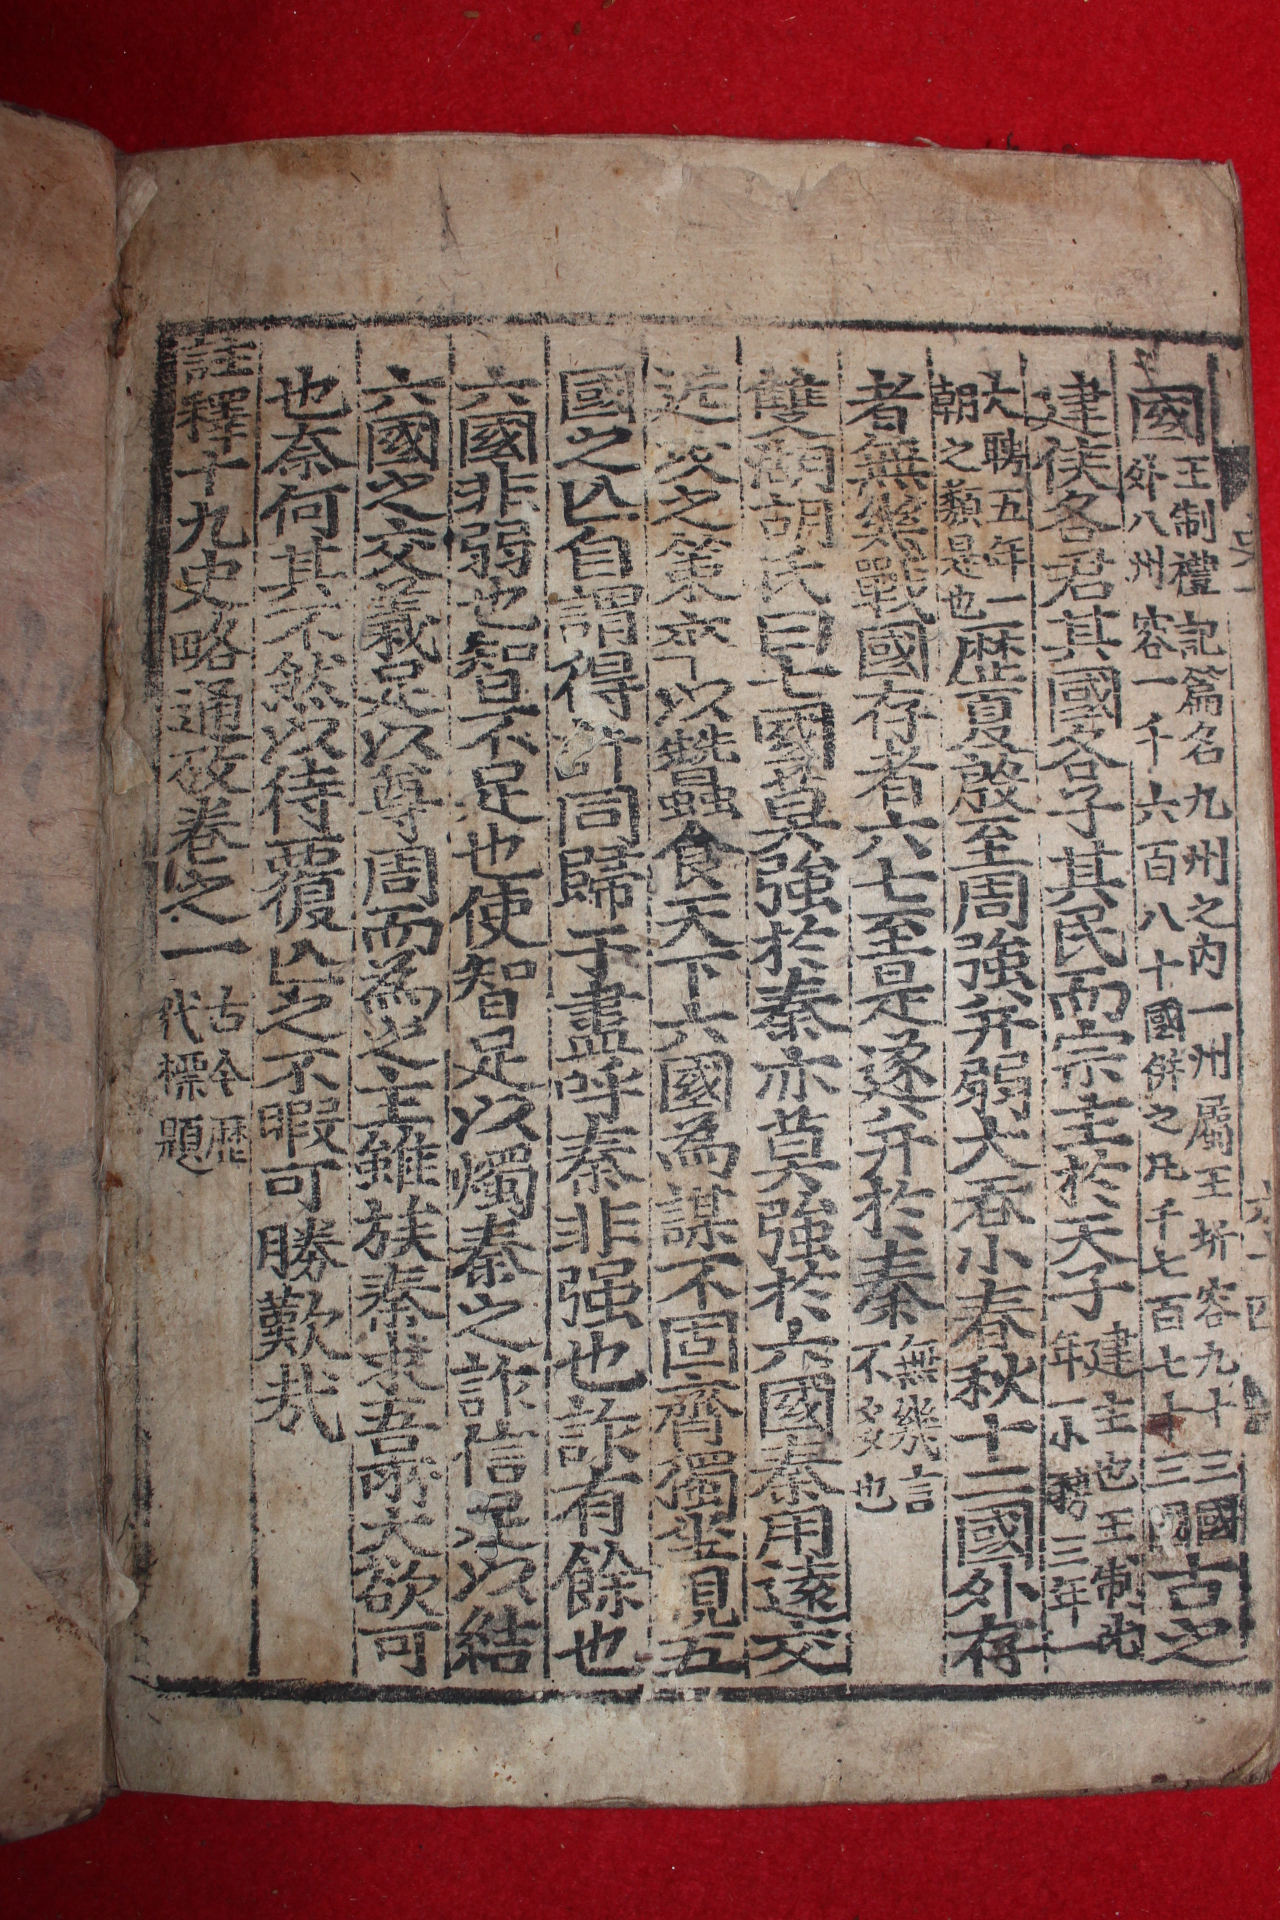 國王制禮記篇名九州之內一州屬王圻容九十三國外八州容一千六百八十國併之凡千七百七十三國古之
建侯各君其國各子其民而宗主於天子建主也王制比年一小聘三年一
大聘五年一朝之類是也歷夏殷至周強并弱大吞小春秋十二國外存
者無幾戰國存者六七至是遂并於秦無幾言不多也
雙湖胡氏曰七國莫強於秦亦莫強於六國秦用遠交
近攻之策亦以蠶食天下六國為謀不固齊獨坐見五
國之亡自謂得計同歸于盡呼秦非强也詐有餘也
六國非弱也智不足也使智足以燭秦之詐信足以結
六國之交義足以尊周而為之主雖族秦求吾所大欲可
也奈何其不然以待覆亡之不暇可勝歎哉
註釋十九史略通攷卷之一古今歷代標題